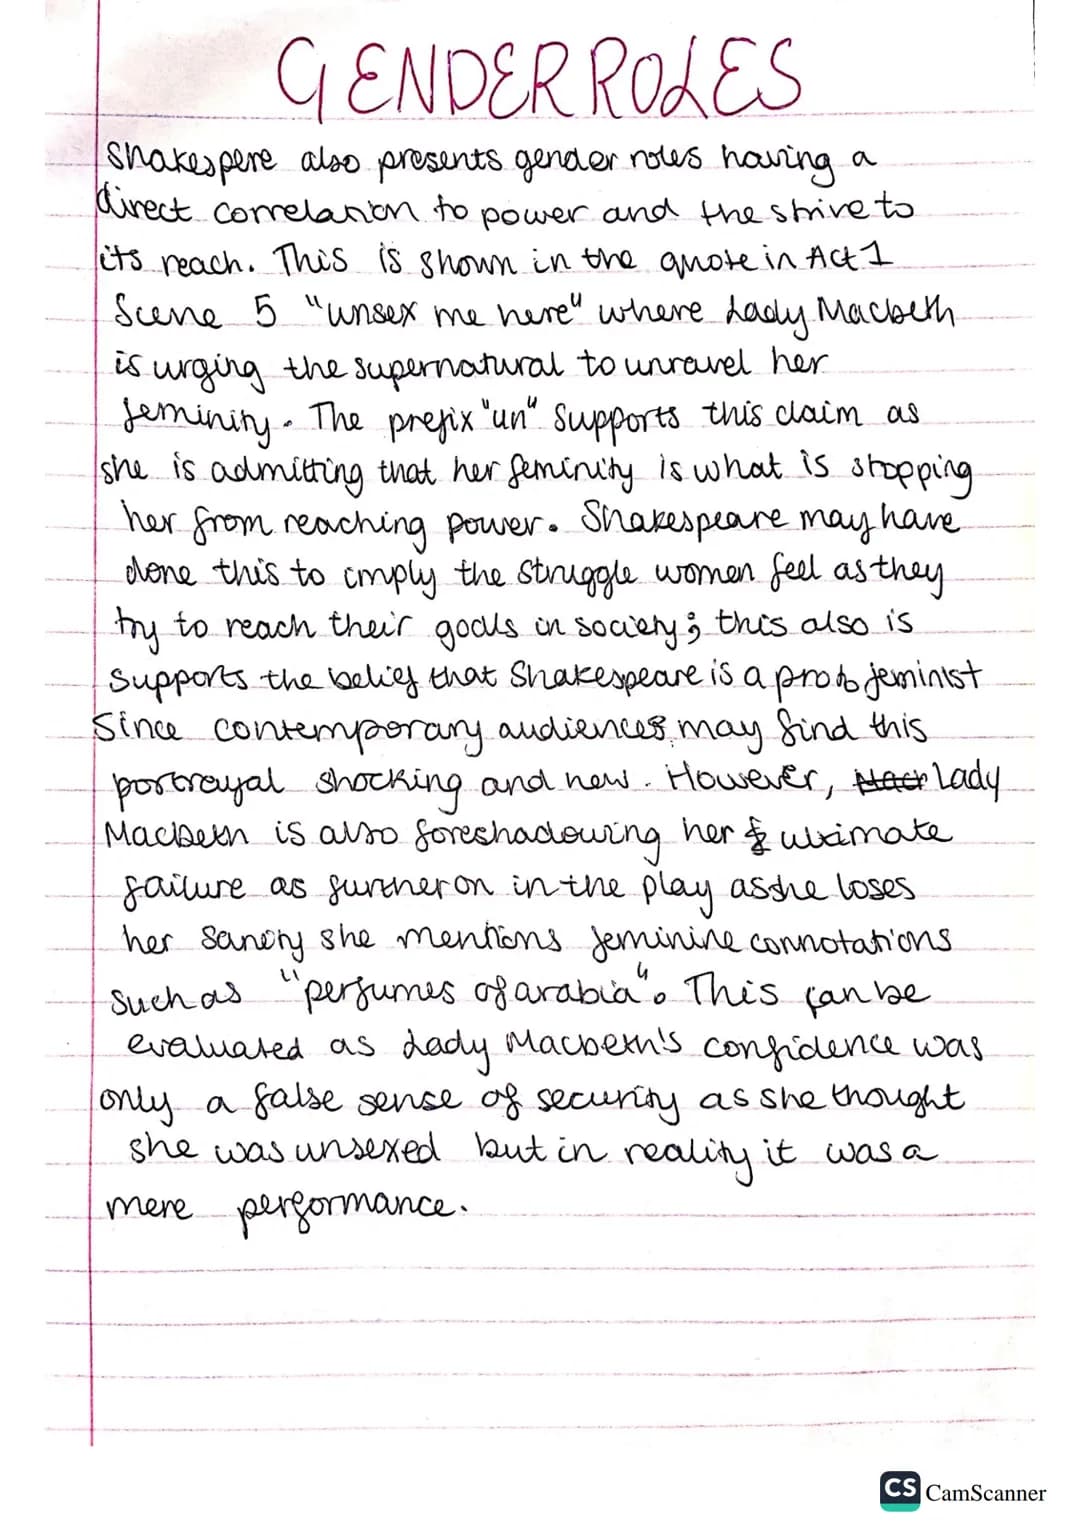 GENDER ROLES
Shakespere also presents gender roles having a
direct correlation to power and the strive to
its reach. This is shown in the quote in Act 1
Scene 5 "unsex me here" where Lady Macbeth
is urging the supernatural to unravel her
feminity. The prefix "un" supports this claim as
she is admitting that her feminity is what is stopping
her from reaching power. Shakespeare may have
done this to imply the struggle women feel as they
try to reach their goals in society; this also is
supports the belief that Shakespeare is a proto feminist
Since contemporary audiences may find this
portrayal shocking and new. However, Lady
Macbeth is also foreshadowing her ultimate
failure as further on in the play as she loses
her sanity she mentions feminine connotations
such as "perfumes of arabia". This can be
evaluated as Lady Macbeth's confidence was
only a false sense of security as she thought
she was unsexed but in reality it was a
mere performance.
CS CamScanner